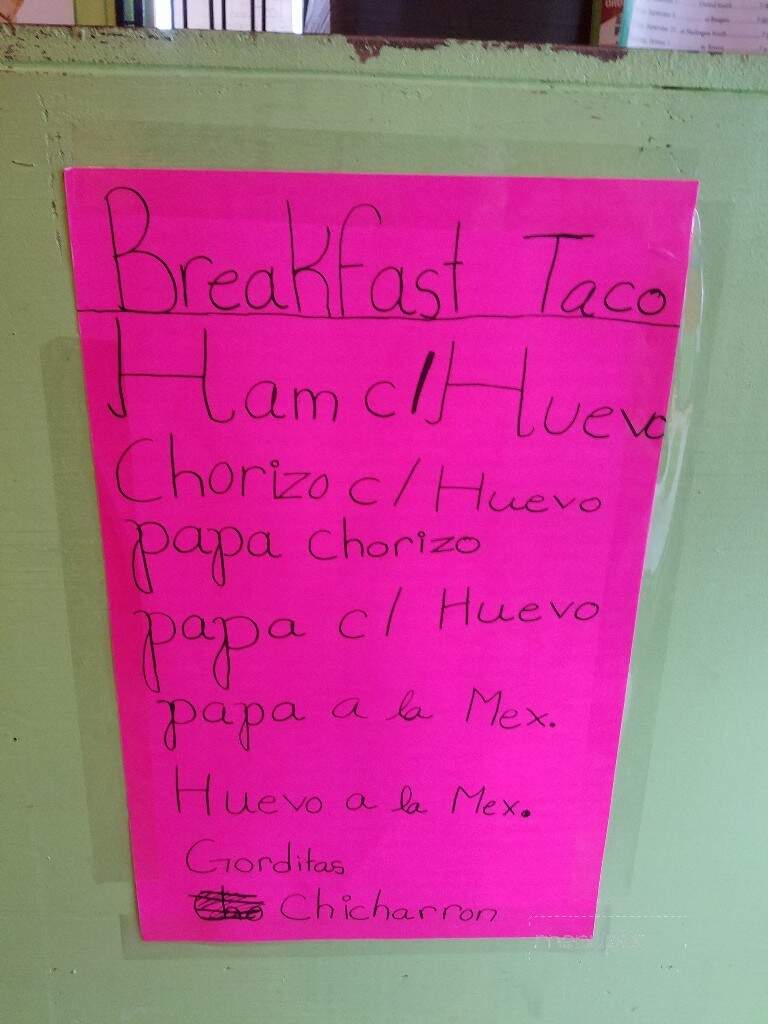 Breakfast Taco
Ham c/Huevo
Chorizo c/ Huevo
papa chorizo
papa c/ Huevo
papa a la Mex.
Huevo a la Mex.
Gorditas
Chicharron